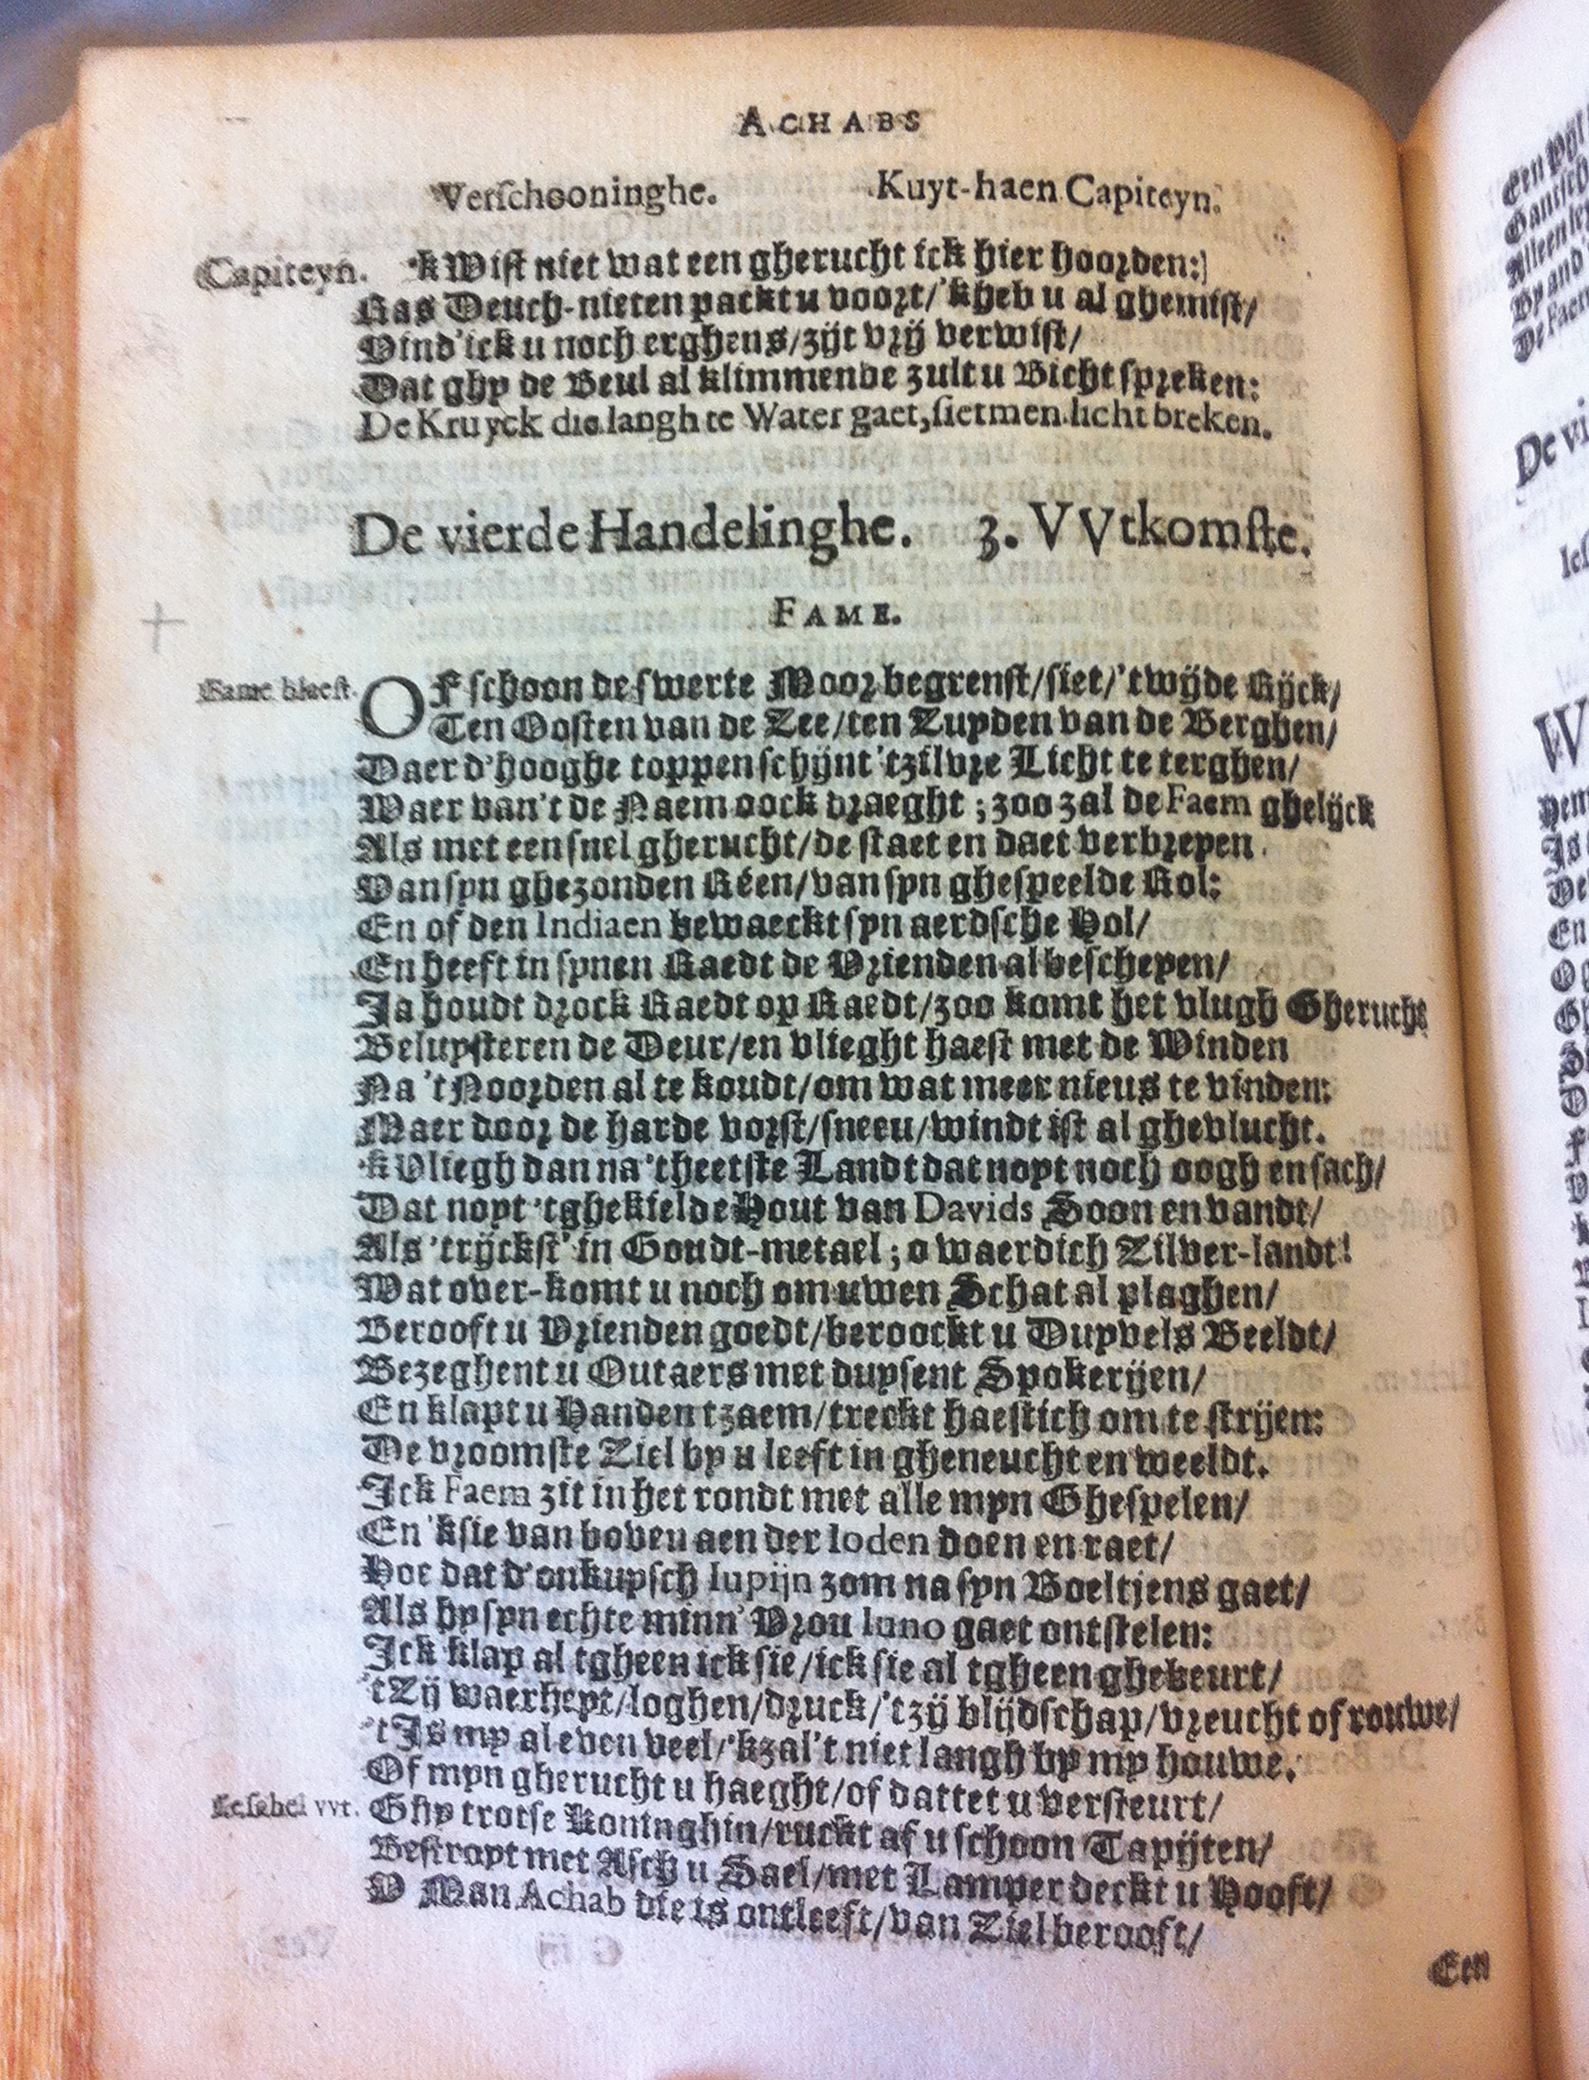 ACHABS
Verschooninghe. Kuyt-haen Capiteyn.
Capiteyn. 'k Wist niet wat een gherucht ick hier hoorden:)
Ras Deuch-nieten packt u voort/ 'kheb u al ghemist/
Vind' ick u noch erghens/ zijt vrij verwist/
Dat ghy de Beul al klimmende zult u Bicht spreken:
De Kruyck die langh te Water gaet, siet men licht breken.
De vierde Handelinghe. 3. VVtkomste.
FAME.
Fame blaest. OF schoon de swerte Moor begrenst/ siet/ 'twijde Rijck/
Ten Oosten van de Zee/ ten Zuyden van de Berghen/
Daer d'hooghe toppen schijnt 'tzilvre Licht te terghen/
Waer van't de Naem oock draeght; zoo zal de Faem ghelijck
Als met een snel gherucht/ de staet en daet verbreyen
Van syn ghezonden Réen/ van syn ghespeelde Rol:
En of den Indiaen bewaeckt syn aerdsche Hol/
En heeft in synen Raedt de Vrienden al bescheyen/
Ja houdt drock Raedt op Raedt/ zoo komt het vlugh Gherucht
Beluysteren de Deur/ en vlieght haest met de Winden
Na 't Noorden al te koudt/ om wat meer nieus te vinden:
Maer door de harde vorst/ sneeu/ windt ist al ghevlucht.
'k Vliegh dan na 'theetste Landt dat noyt noch oogh en sach/
Dat noyt 'tghekielde Hout van Davids Soon en vandt/
Als 'trijckst' in Goudt-metael; o waerdich Zilver-landt!
Wat over-komt u noch om uwen Schat al plaghen/
Berooft u Vrienden goedt/ beroockt u Duyvels Beeldt/
Bezeghent u Outaers met duysent Spokerijen/
En klapt u Handen tzaem/ treckt haestich om te strijen:
De vroomste Ziel by u leeft in gheneucht en weeldt.
Ick Faem zit in het rondt met alle myn Ghespelen/
En 'ksie van boven aen der Ioden doen en raet/
Hoe dat d'onkuysch Iupijn zom na syn Boeltjens gaet/
Als hy syn echte minn' Vrou Iuno gaet ontstelen:
Ick klap al tgheen ick sie/ ick sie al tgheen ghebeurt/
't Zij waerheyt/ loghen/ druck/ 'tzij blijdschap/ vreucht of rouwe/
't Is my al even veel/ 'kzal't niet langh by my houwe.
Of myn gherucht u haeght/ of dattet u versteurt/
Iesabel vvt. Ghy trotse Koninghin/ ruckt af u schoon Tapijten/
Bestroyt met Asch u Sael/ met Lamper deckt u Hooft/
V Man Achab die is ontleeft/ van Ziel berooft/
Een